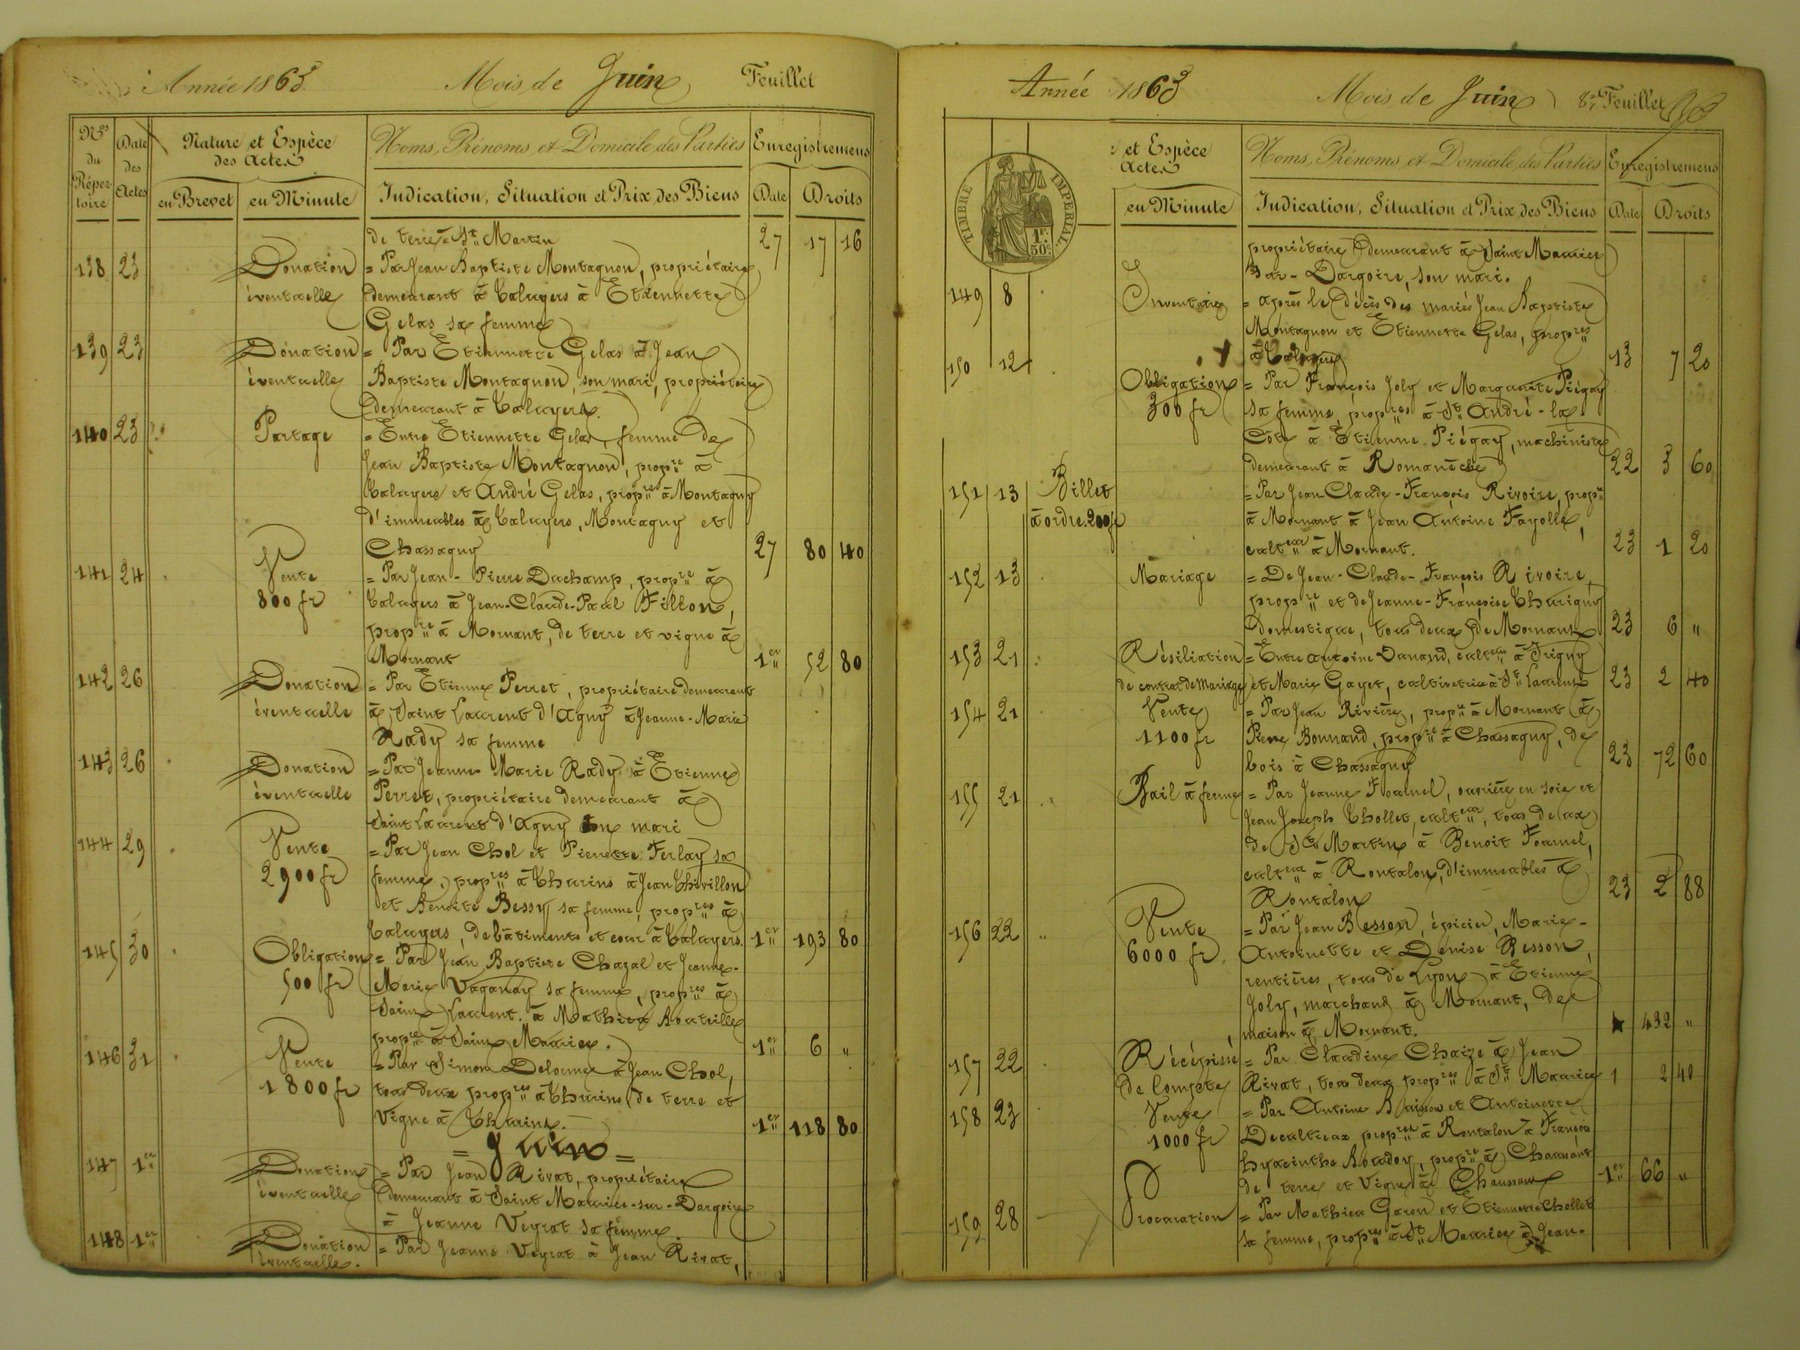 Année 1863 Mois de Juin Feuillet
Nos du Réper-toire Date des Actes Nature et Espèce des Actes Noms, Prénoms et Domicile des Parties Enregistremens
en Brevet en Minute Indication, Situation et Prix des Biens Date Droits
de terre à St Martin 27 17 16
138 23 Donation = Par Jean Baptiste Montagnon, propriétaire
éventuelle demeurant à Taluyers à Etiennette
Gelas sa femme
139 23 Donation = Par Etiennette Gelas à Jean
éventuelle Baptiste Montagnon, son mari, propriétaire
demeurant à Taluyers.
140 23 Partage = Entre Etiennette Gelas, femme de
Jean Baptiste Montagnon, propre à
Taluyers et André Gelas, propre à Montagny
d'immeubles à Taluyers, Montagny et
Chassagny 27 80 40
141 24 Vente = Par Jean-Pierre Duchamp, propre à
800 fr Taluyers à Jean-Claude-Paul Fillon,
propre à Mornant, de terre et vigne à
Mornant 1er 52 80
142 26 Donation = Par Etienne Perret, propriétaire demeurant
éventuelle à Saint Laurent d'Agny à Jeanne-Marie
Rady sa femme
143 26 Donation = Par Jeanne Marie Rady à Etienne
éventuelle Perret, propriétaire demeurant à
Saint Laurent d'Agny son mari
144 29 Vente = Par Jean Chol et Pierrette Ferlay sa
2900 fr femme, propres à Thurins à Jean Thivillon
et Benoite Bessy sa femme, propres à
Taluyers, de bâtiments et cour à Taluyers. 1er 193 80
145 30 Obligation = Par Jean Baptiste Chazal et Jeanne-
500 fr Marie Vaganay sa femme, propres à
Saint Laurent. à Mathieu Bouteille
propre à Saint Maurice. 1er 6 "
146 31 Vente = Par Simon Delorme à Jean Chol,
1800 fr tous deux propres à Thurins de terre et
vigne à Thurins. 1er 118 80
= Juin =
147 1er Donation = Par Jean Rivat, propriétaire
éventuelle demeurant à Saint Maurice-sur-Dargoire
à Jeanne Veyrat sa femme.
148 1er Donation = Par Jeanne Veyrat à Jean Rivat,
éventuelle.
Année 1863 Mois de Juin 8e Feuillet
et Espèce Actes Noms, Prénoms et Domicile des Parties Enregistremens
en Minute Indication, Situation et Prix des Biens Date Droits
TIMBRE IMPERIAL 1F. 50c.
propriétaire demeurant à Saint Maurice
sur-Dargoire, son mari.
149 8 Inventaire = après le décès des mariés Jean Baptiste
Montagnon et Etiennette Gelas, propres
à Taluyers 13 7 20
150 12 Obligation = Par François Joly et Marguerite Piégay
300 fr sa femme, propres à St André-la
Côte à Etienne Piégay, machiniste
demeurant à Romanèche 22 3 60
151 13 Billet = Par Jean Claude-François Rivoire, propre
à ordre. 200 fr à Mornant à Jean Antoine Fayolle,
culteur à Mornant. 23 1 20
152 13 Mariage = De Jean-Claude-François Rivoire,
propre et de Jeanne-Françoise Thurigny
domestique, tous deux de Mornant 23 6 "
153 21 Résiliation = Entre Antoine Dunand, culteur à Irigny
de contrat de mariage et Marie Gayet, cultivatrice à St Laurent 23 2 40
154 21 Vente = Par Jean Rivière, propre à Mornant à
1100 fr Pierre Bonnand, propre à Chassagny, de
bois à Chassagny 23 72 60
155 21 Bail à ferme = Par Jeanne Fournel, ouvrière en soie et
Jean Joseph Chollet, culteur, tous deux
de St Martin à Benoit Fournel,
culteur à Rontalon, d'immeubles à
Rontalon 23 2 88
156 22 Vente = Par Jean Besson, épicier, Marie-
6000 fr Antoinette et Denise Besson,
rentières, tous de Lyon à Etienne
Joly, marchand à Mornant, de
maison à Mornant. 432 "
157 22 Récépissé = Par Claudine Chaize à Jean
de Compte Rivat, tous deux propres à St Maurice 1 2 40
158 23 Vente = Par Antoine Buisson et Antoinette
1000 fr Decultieux propres à Rontalon à François
hyacinthe propre à Chaussan
de terre et vigne à Chaussan 1er 66 "
159 28 Procuration = Par Mathieu Garon et Etiennette Chollet
sa femme, propres à St Maurice à Jean-